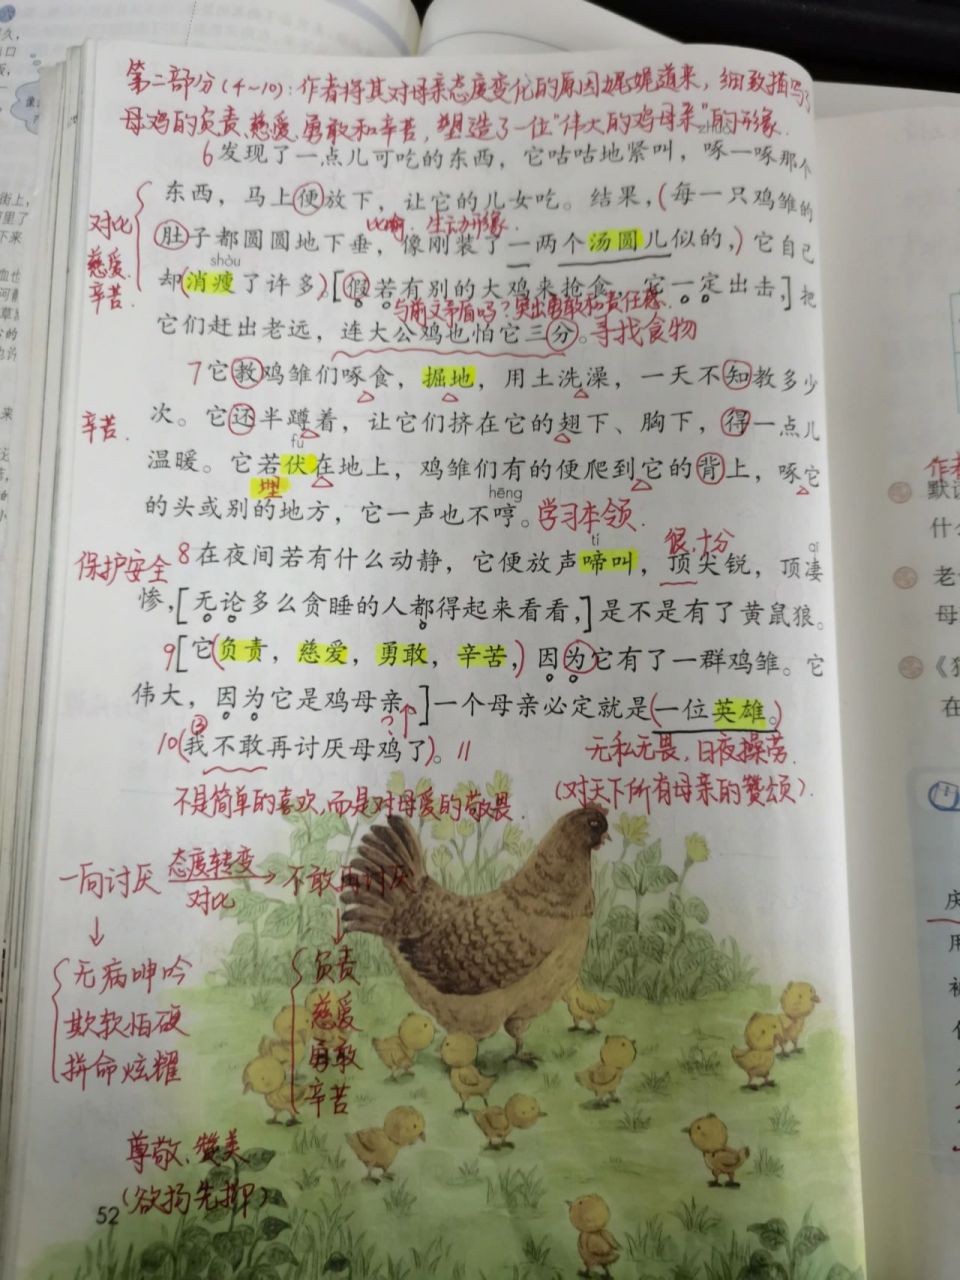 第二部分(4~10):作者将其对母亲态度变化的原因娓娓道来,细致描写了
母鸡的负责、慈爱、勇敢和辛苦,塑造了一位"伟大的鸡母亲"的形象.
zhuó
6发现了一点儿可吃的东西，它咕咕地紧叫，啄一啄那个
东西，马上便放下，让它的儿女吃。结果，(每一只鸡雏的
对比
慈爱.
辛苦.
比喻.生动形象.
肚子都圆圆地下垂，像刚装了一两个汤圆儿似的，)它自己
shòu
却(消瘦了许多)。[假若有别的大鸡来抢食，它一定出击，]把
与前文矛盾吗?突出勇敢和责任感.
它们赶出老远，连大公鸡也怕它三分。寻找食物
7它教鸡雏们啄食，掘地，用土洗澡，一天不知教多少
次。它还半蹲着，让它们挤在它的翅下、胸下，得一点儿
辛苦.
fú
温暖。它若伏在地上，鸡雏们有的便爬到它的背上，啄它
hēng
的头或别的地方，它一声也不哼。学习本领.
很,十分
tí
qī
保护安全
8在夜间若有什么动静，它便放声啼叫，顶尖锐，顶凄
惨，[无论多么贪睡的人都得起来看看，]是不是有了黄鼠狼。
9[它(负责，慈爱，勇敢，辛苦，)因为它有了一群鸡雏。它
伟大，因为它是鸡母亲。]一个母亲必定就是(一位英雄。)
?
③
10(我不敢再讨厌母鸡了)。11
无私无畏，日夜操劳.
不是简单的喜欢,而是对母爱的敬畏.
(对天下所有母亲的赞颂).
一向讨厌 态度转变 不敢再讨厌
对比
无病呻吟
欺软怕硬
拼命炫耀
负责
慈爱
勇敢
辛苦
尊敬、赞美
(欲扬先抑)
52
作者
默读
什么
老舍
母
《猫
在